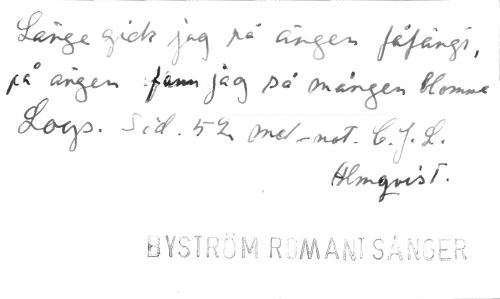 Länge gick jag på ängen fåfängt,
på ängen fann jag så mången blomma
Loqs. Sid. 52 md-not. C.J.L.
Almqvist.
BYSTRÖM ROMANT SÅNGER